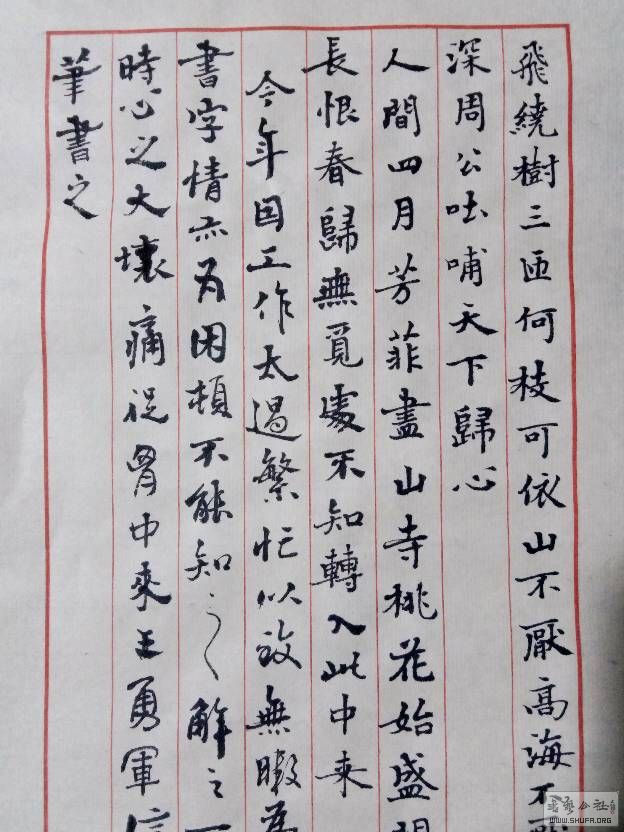 飛繞樹三匝何枝可依山不厭高海不
深周公吐哺天下歸心
人間四月芳菲盡山寺桃花始盛開
長恨春歸無覓處不知轉入此中来
今年因工作太過繁忙以致無暇為
書字情亦為困頓不能知之解之一
時心之大壞痛從胃中来王勇軍信
筆書之
WWW.SHUFA.ORG